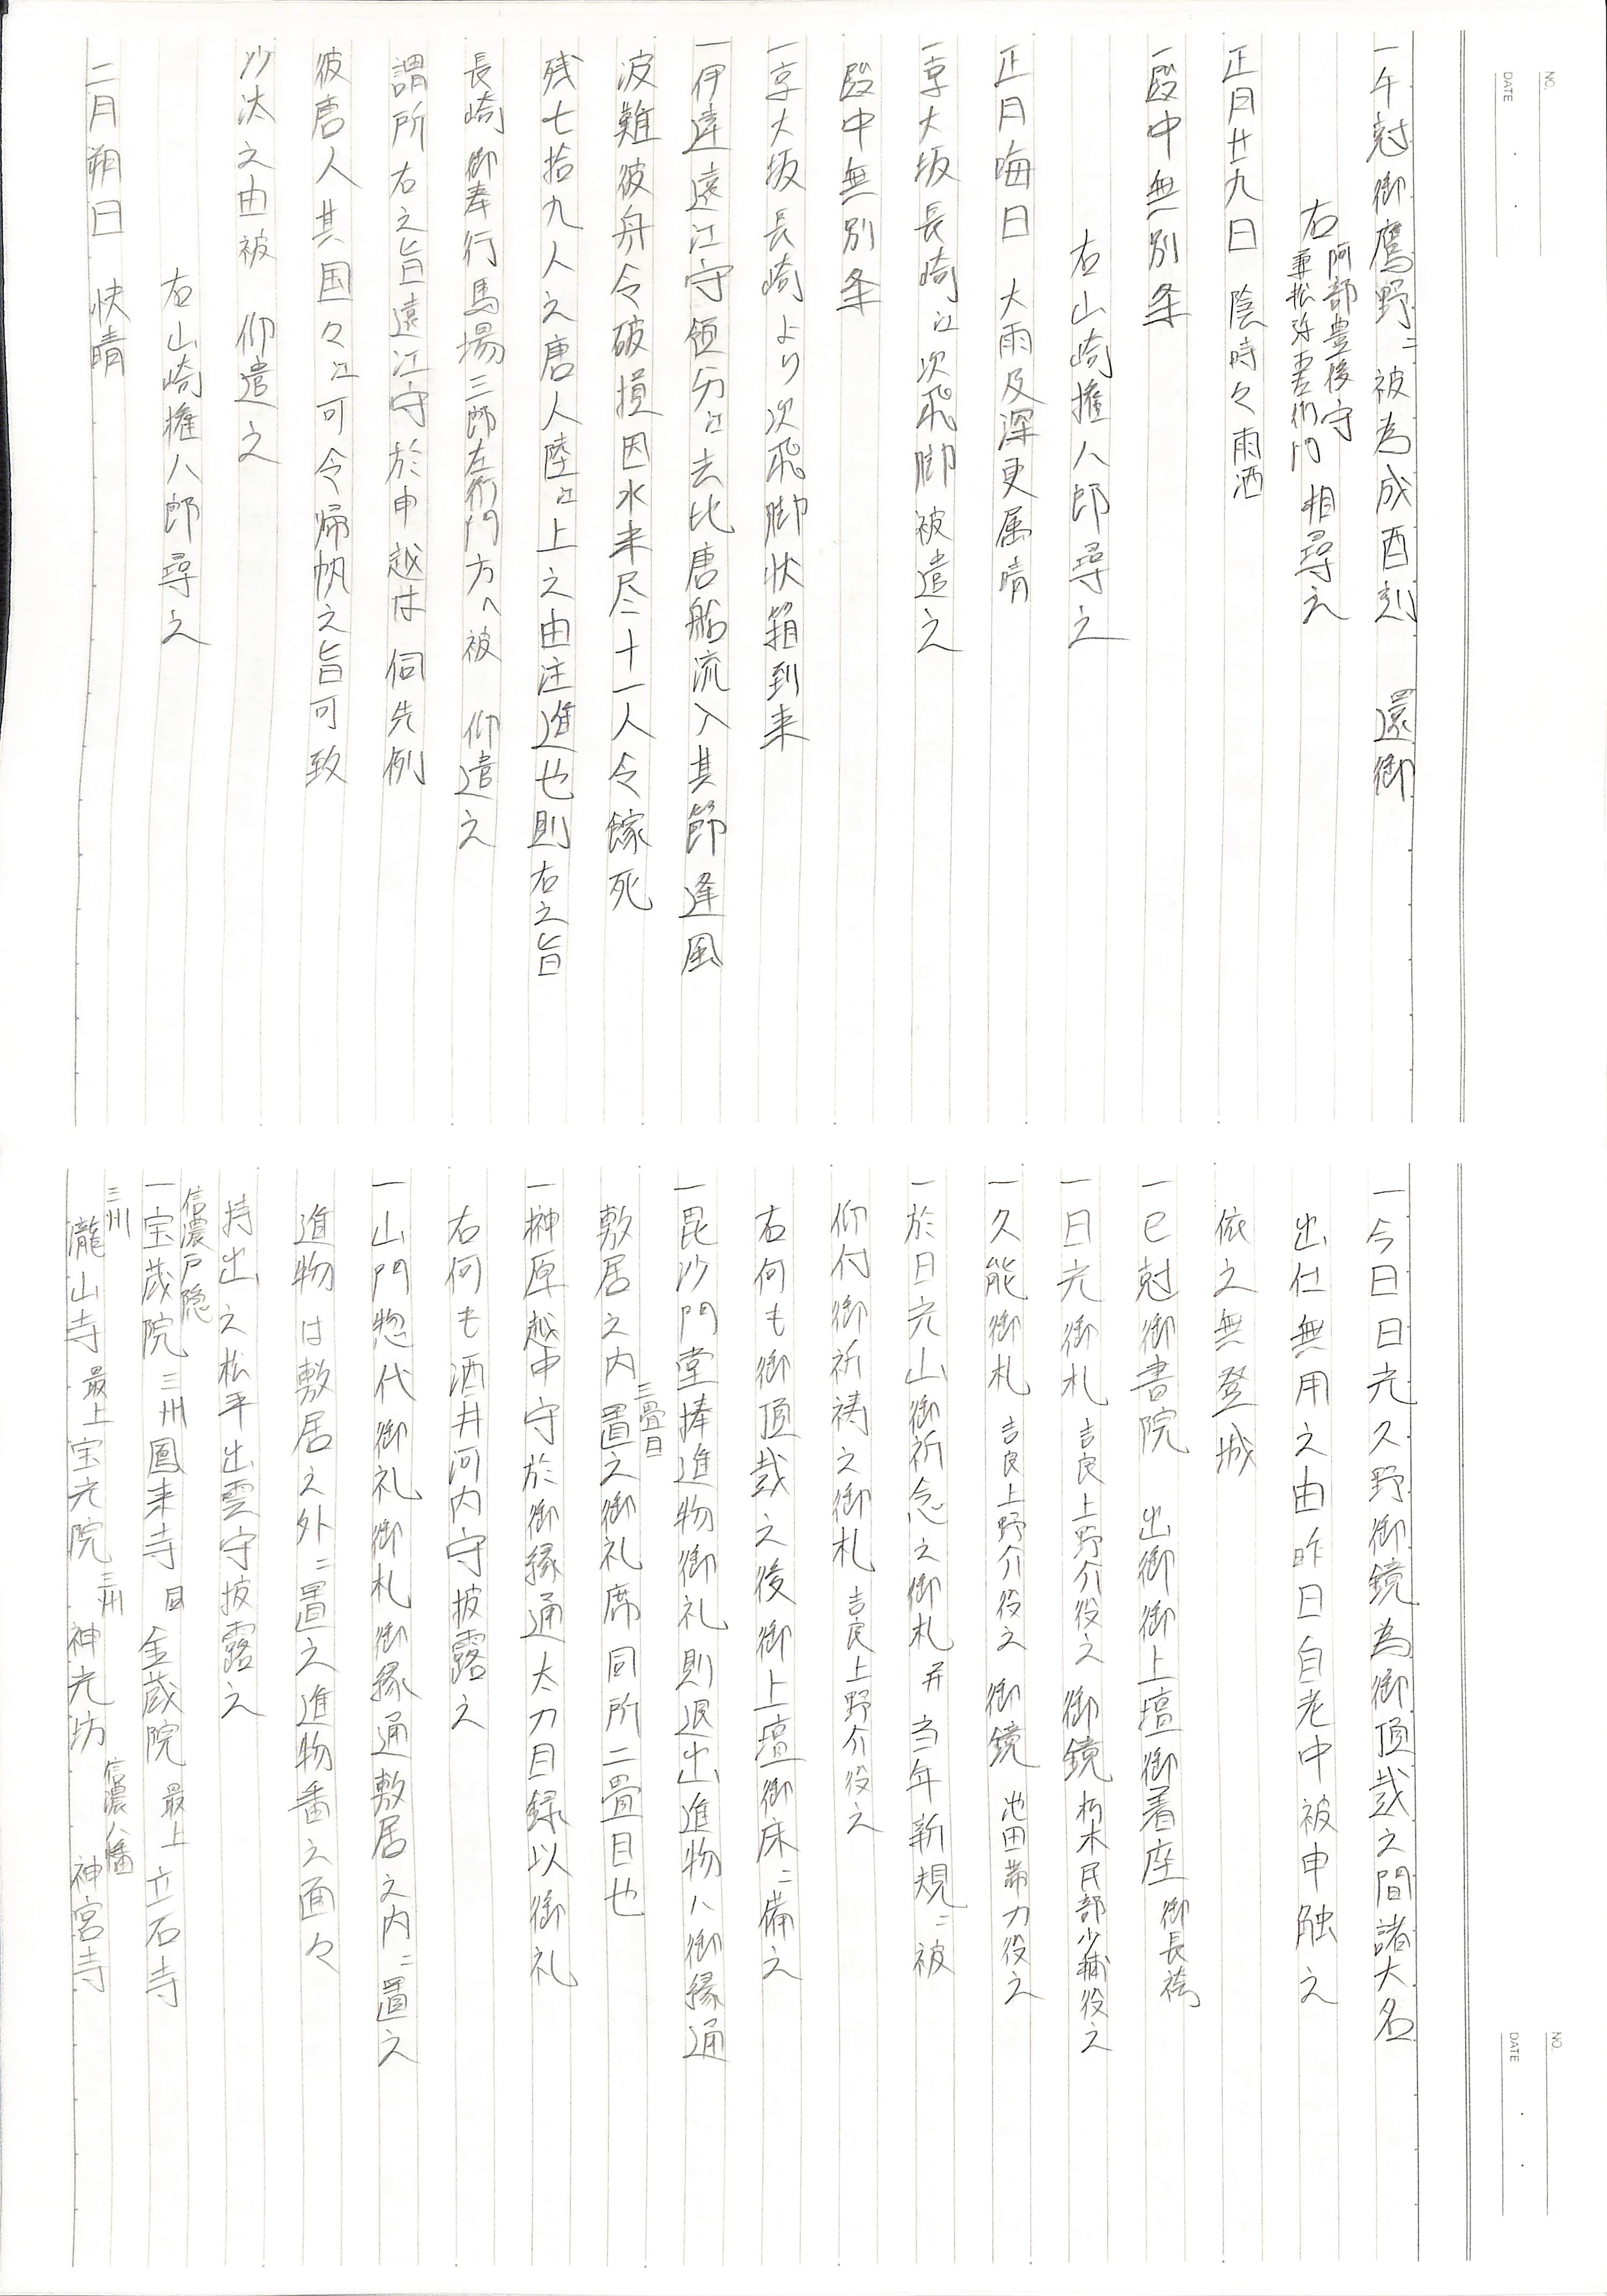 NO.
DATE
一午尅御鷹野ニ被為成酉刻 還御
右 阿部豊後守 兼松弥五左衛門 相尋之
正月廿九日 陰時々雨洒
一殿中無別条
右山崎権八郎尋之
正月晦日 大雨及深更属晴
一京大坂長崎江次飛脚被遣之
殿中無別条
一京大坂長崎より次飛脚状箱到来
一伊達遠江守領分江去比唐船流入其節逢風
波難彼舟令破損因水来尽十一人令餓死
残七拾九人之唐人陸江上之由注進也則右之旨
長崎御奉行馬場三郎左衛門方へ被 仰遣之
謂所右之旨遠江守於申越は伺先例
彼唐人其国々江可令帰帆之旨可致
沙汰之由被 仰遣之
右山崎権八郎尋之
二月朔日 快晴
NO.
DATE
一今日日光久野御鏡為御頂戴之間諸大名
出仕無用之由昨日自老中被申触之
依之無登城
一巳尅御書院 出御御上壇御着座 御長袴
一日光御札 吉良上野介役之 御鏡 朽木民部少輔役之
一久能御札 吉良上野介役之 御鏡 池田帯刀役之
一於日光山御祈念之御札并当年新規ニ被
仰付御祈祷之御札 吉良上野介役之
右何も御頂戴之後御上壇御床ニ備之
一毘沙門堂捧進物御礼則退出進物ハ御縁通
敷居之内三畳目置之御礼席同所二畳目也
一榊原越中守於御縁通太刀目録以御礼
右何も酒井河内守披露之
一山門惣代御礼御札御縁通敷居之内ニ置之
進物は敷居之外ニ置之進物番之面々
持出之松平出雲守披露之
信濃戸隠
一宝蔵院 三州鳳来寺 同金蔵院 最上立石寺
三州瀧山寺 最上宝光院 三州神光坊 信濃八幡神宮寺